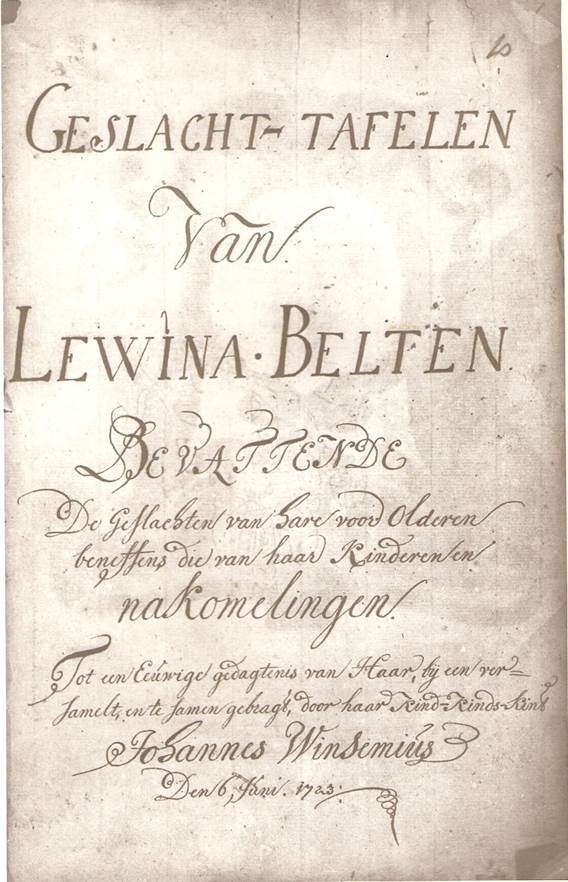 10
GESLACHT-TAFELEN
Van.
LEWINA·BELTEN.
BEVATTENDE
De Geslachten van hare voor Olderen
beneffens die van haar Kinderen en
nakomelingen.
Tot een Eeúwige gedagtenis van Haar, bij een ver=
samelt, en te samen gebragt, door haar Kind-Kinds-Kint
Johannes Winsemiús
Den 6, Juni. 1723.